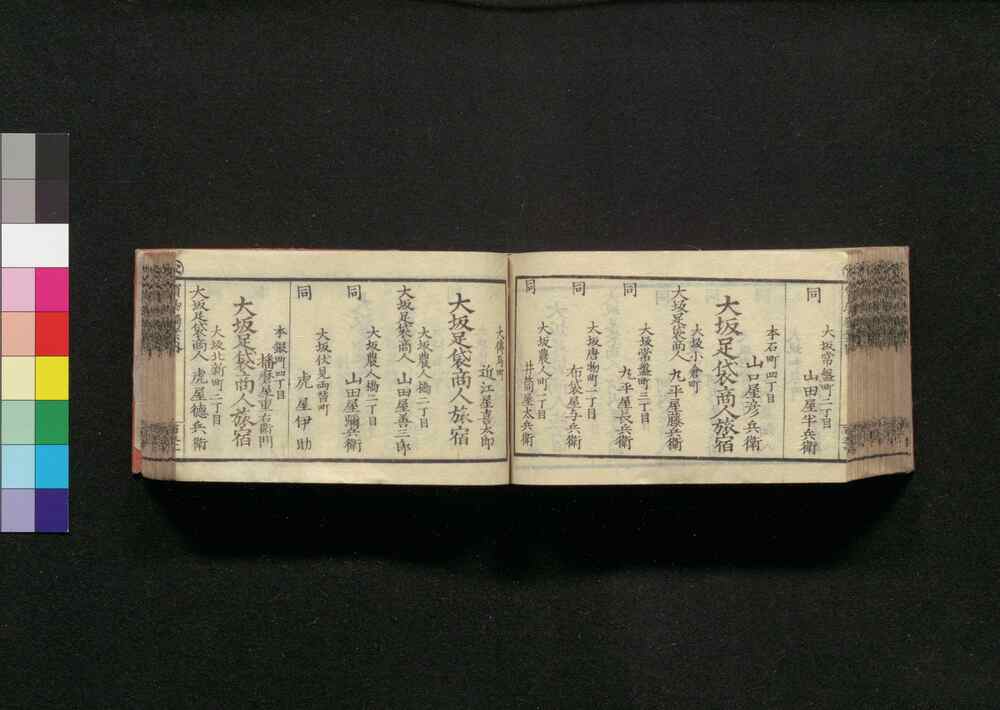 大坂常盤町二丁目
同 山田屋半兵衛
本石町四丁目
山口屋彦兵衛
大坂足袋商人旅宿
大坂小倉町
大坂足袋商人 九平屋藤兵衛
大坂常盤町三丁目
同 九平屋長兵衛
大坂唐物町二丁目
同 布袋屋与兵衛
大坂農人町二丁目
同 井筒屋太兵衛
大傳馬町
近江屋喜太郎
大坂足袋商人旅宿
大坂農人橋二丁目
大坂足袋商人 山田屋善三郎
大坂農人橋二丁目
同 山田屋彌兵衛
大坂伏見両替町
同 虎屋伊助
本銀町四丁目
播磨屋重右衛門
大坂足袋商人旅宿
大坂北新町二丁目
大坂足袋商人 虎屋徳兵衛